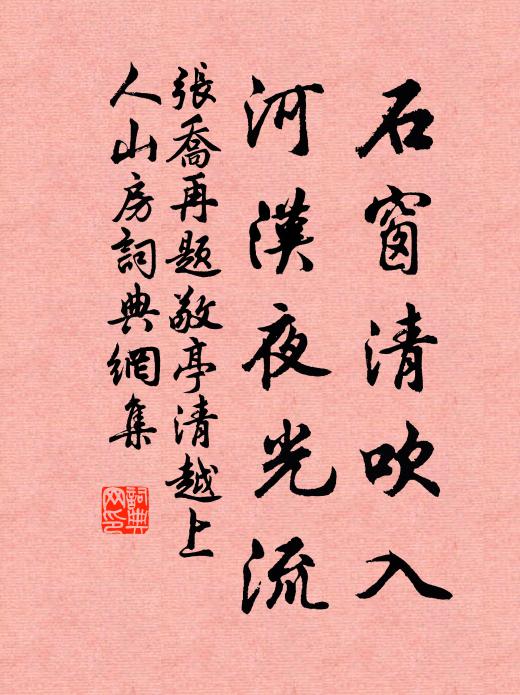 石窗清吹入
河漢夜光流
張喬再題敬亭清越上
人山房詞典網集
詞典
网印